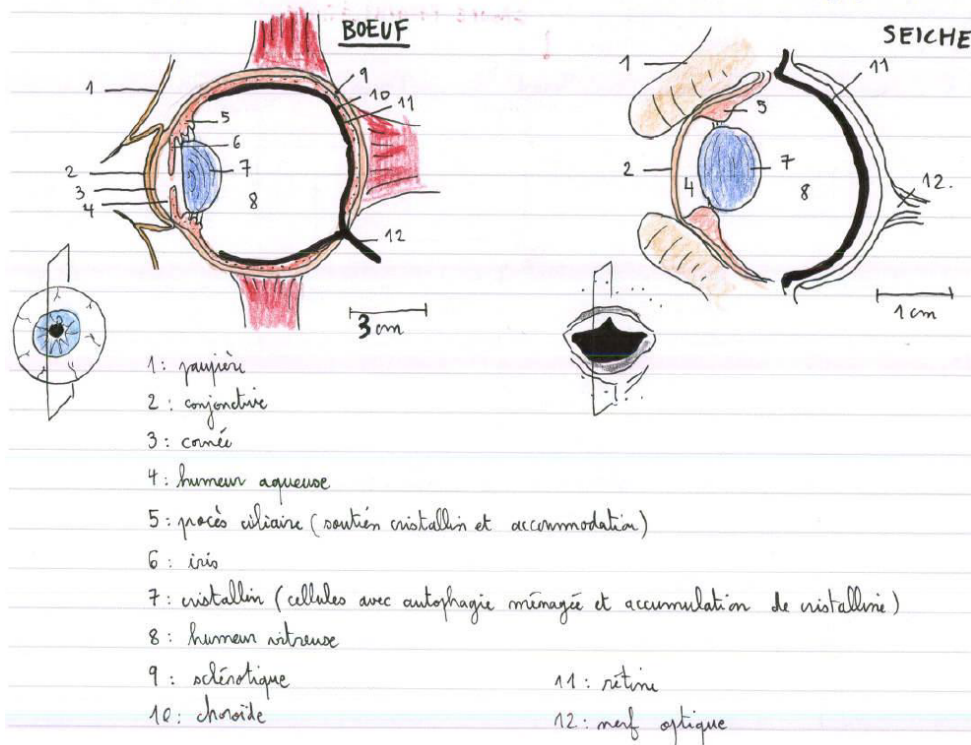 BOEUF
SEICHE
1
2
3
4
5
6
7
8
9
10
11
12
3 cm
1
2
4
5
7
8
11
12.
1 cm
1: paupière
2: conjonctive
3: cornée
4: humeur aqueuse
5: procès ciliaire (soutien cristallin et accommodation)
6: iris
7: cristallin (cellules avec autophagie ménagée et accumulation de cristalline)
8: humeur vitreuse
9: sclérotique
10: choroïde
11: rétine
12: nerf optique